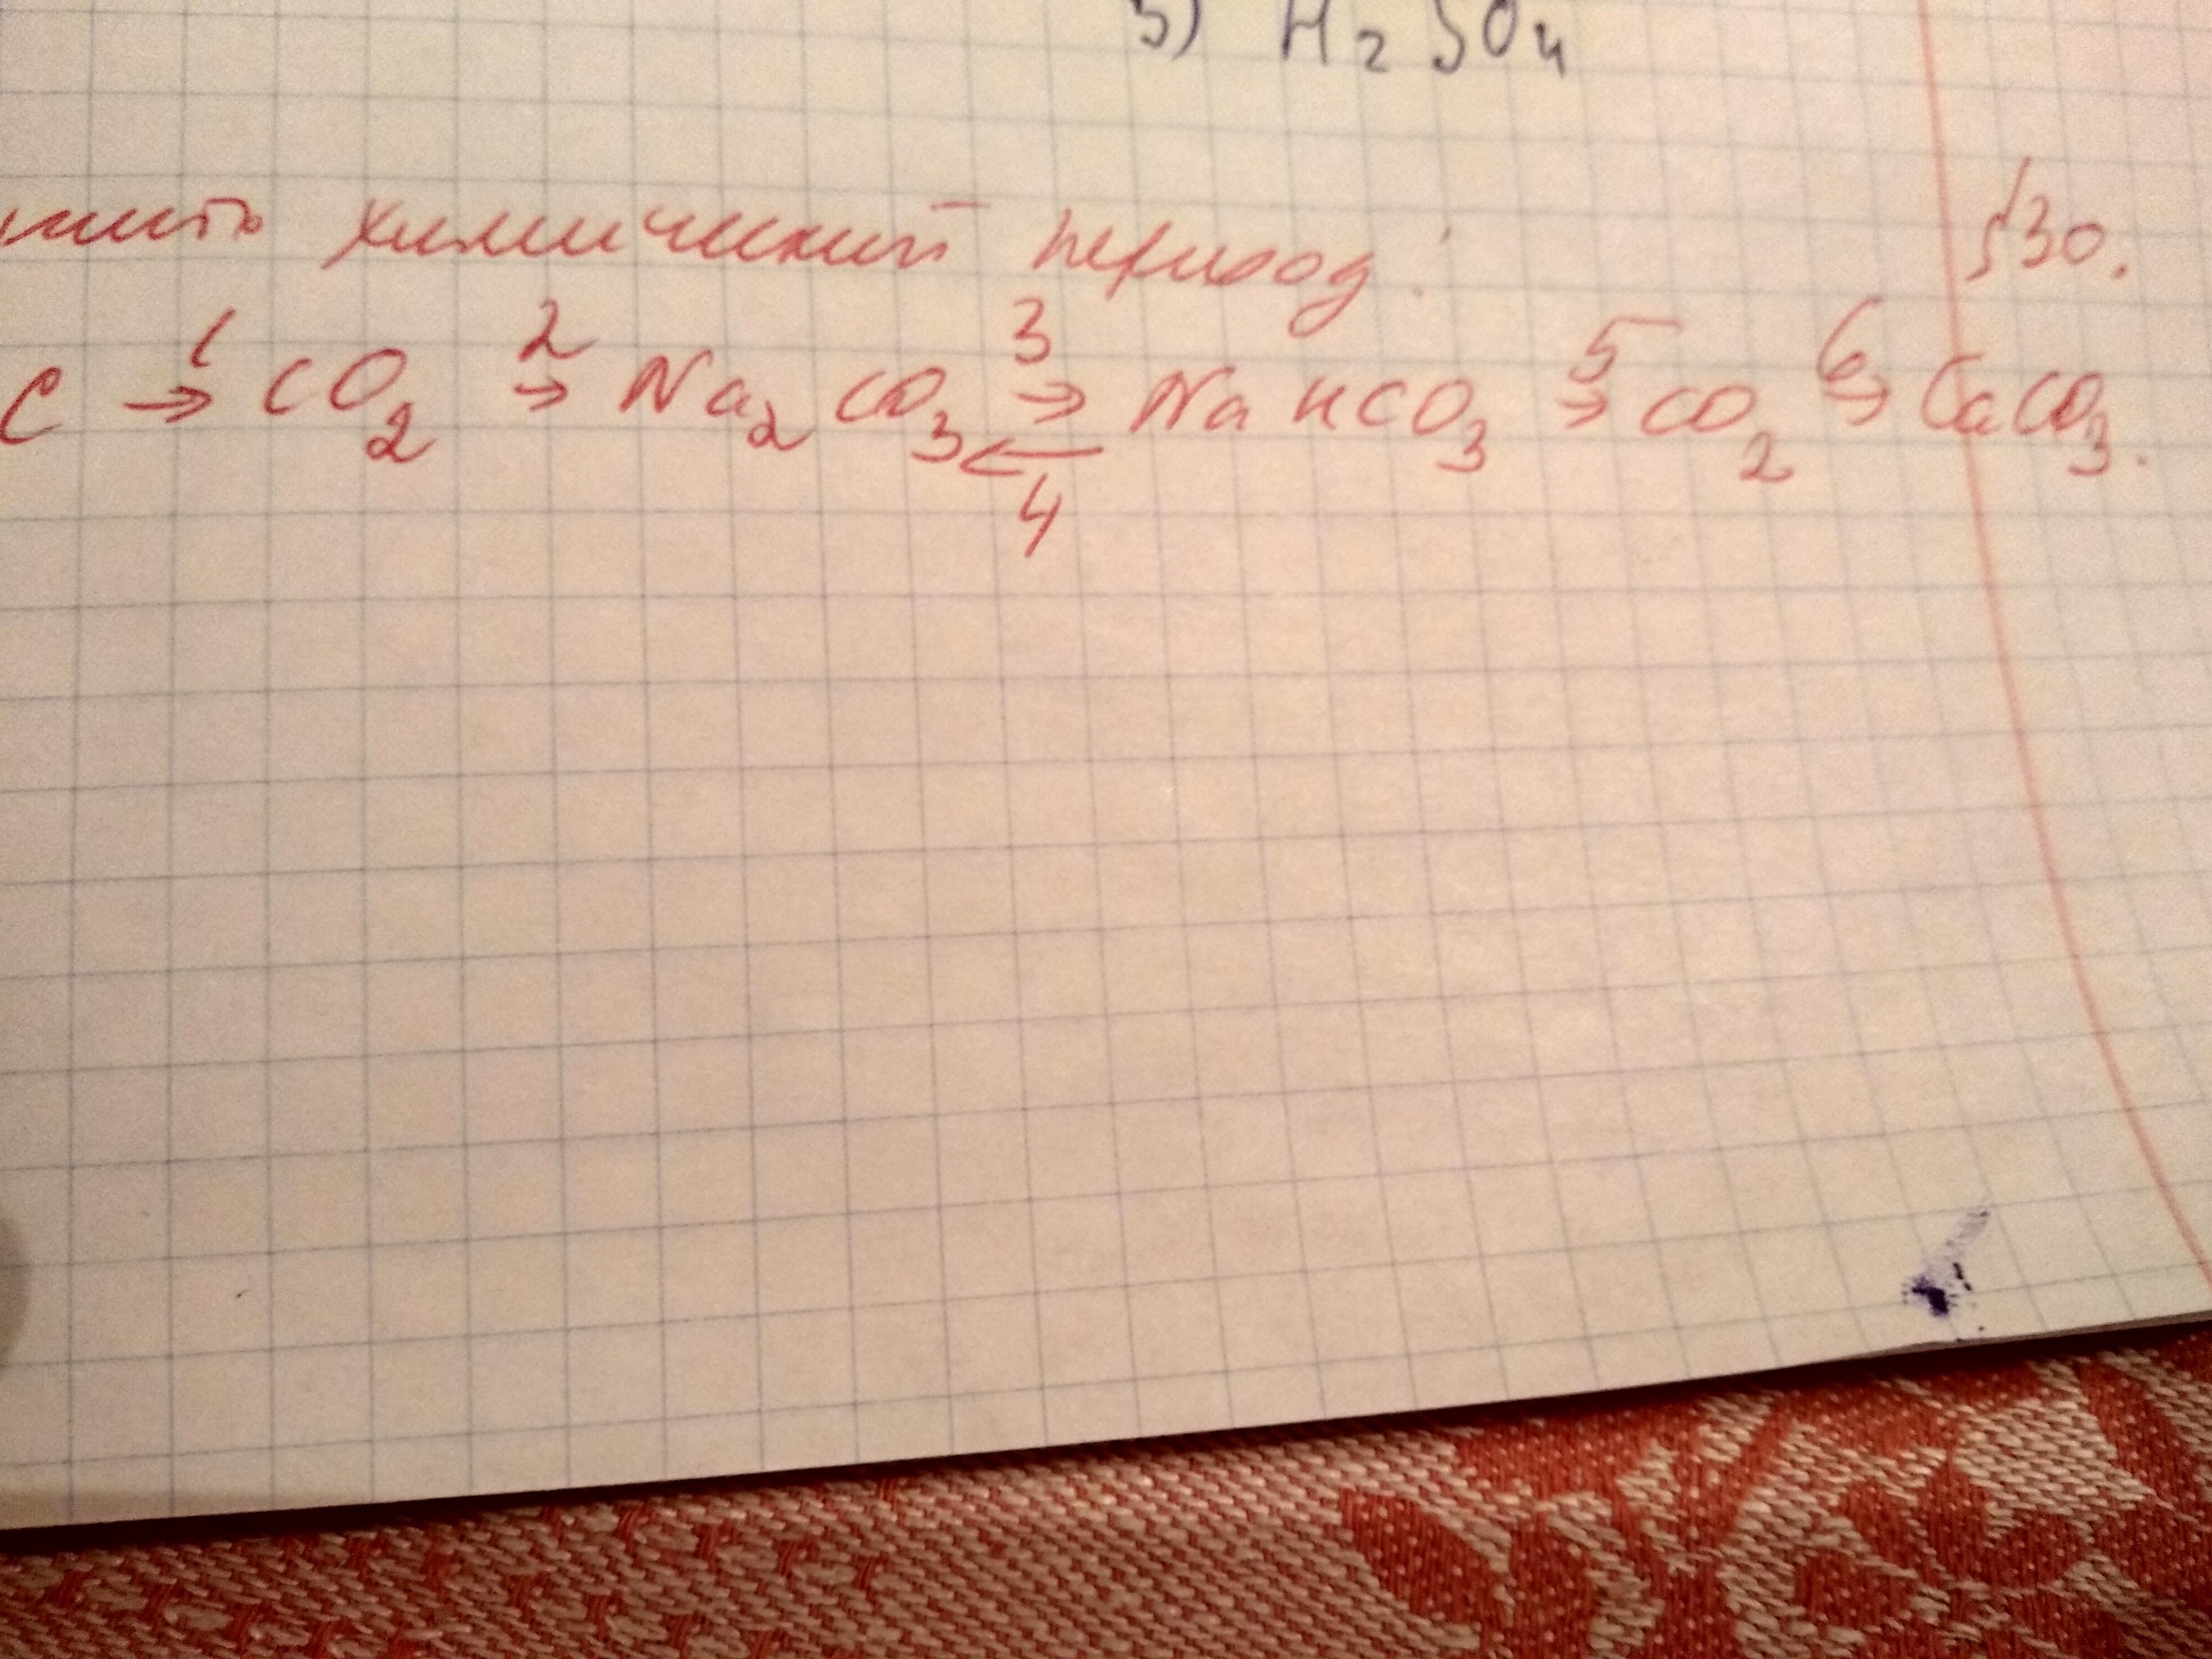 3) H₂SO₄
нить химический переход: §30.
C →¹ CO₂ →² Na₂CO₃ →³ NaHCO₃ →⁵ CO₂ →⁶ CaCO₃.
←
4